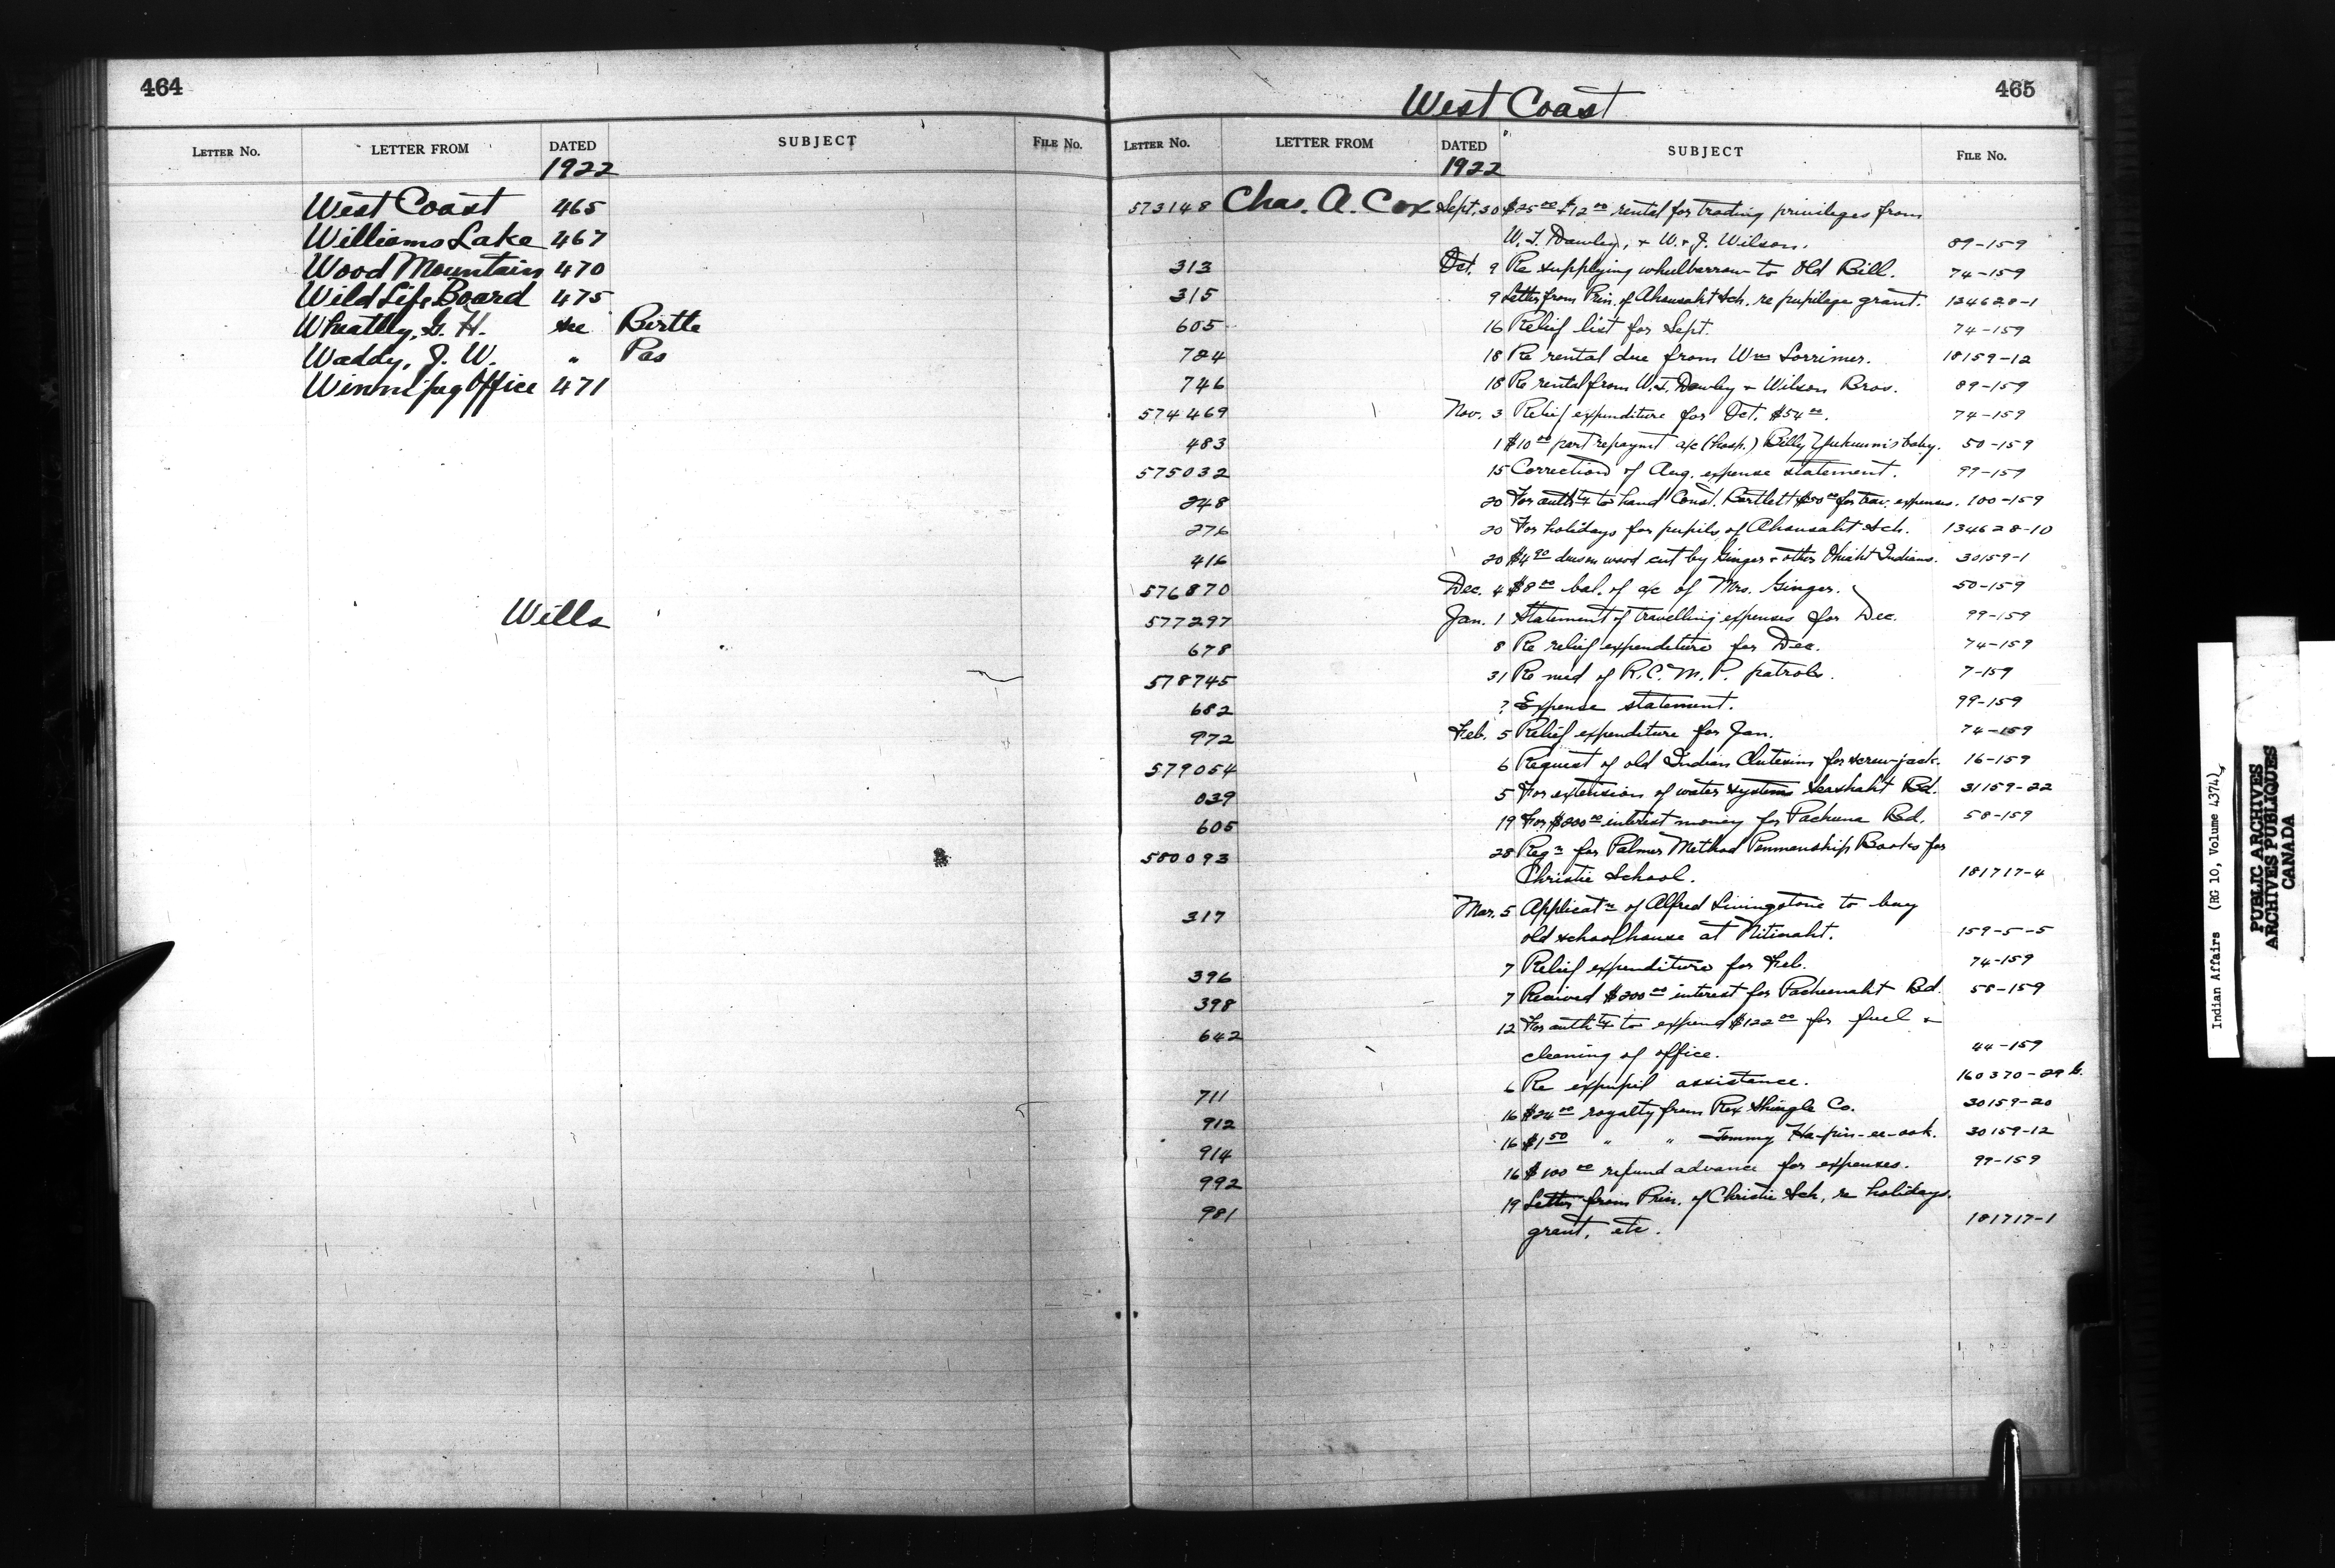 464
LETTER No. LETTER FROM DATED SUBJECT FILE No.
1922
West Coast 465
Williams Lake 467
Wood Mountain 470
Wild Life Board 475
Wheatley, G. H. see Birtle
Waddy, J. W. " Pas
Winnipeg Office 471
Wills
465
West Coast
LETTER No. LETTER FROM DATED SUBJECT FILE No.
1922
573148 Chas. A. Cox Sept. 30 $25.00 + $12.00 rental for trading privileges from
W. T. Dawley, + W. + J. Wilson. 89-159
313 Oct. 9 Re supplying wheelbarrow to Old Bill. 74-159
315 9 Letter from Prin. of Ahousaht Sch. re pupilage grant. 134628-1
605 16 Relief list for Sept. 74-159
724 18 Re rental due from Wm Lorrimer. 18159-12
746 18 Re rental from W.T. Dawley + Wilson Bros. 89-159
574469 Nov. 3 Relief expenditure for Oct. $54.00. 74-159
483 1 $10.00 part repaymt a/c (hosp.) Billy baby. 50-159
575032 15 Correction of Aug. expense statement. 99-159
248 20 For authty to hand Const. Bartlett $50.00 for trav. expenses. 100-159
276 20 For holidays for pupils of Ahousaht Sch. 134628-10
416 20 $4.90 dues on wood cut by Ginger + other Ohiaht Indians. 30159-1
576870 Dec. 4 $8.00 bal. of a/c of Mrs. Ginger. 50-159
577297 Jan. 1 Statement of travelling expenses for Dec. 99-159
678 8 Re relief expenditure for Dec. 74-159
578745 31 Re need of R.C.M.P. patrols. 7-159
682 ? Expense statement. 99-159
972 Feb. 5 Relief expenditure for Jan. 74-159
579054 6 Request of old Indian Clutesim for screw-jack. 16-159
039 5 For extension of water systems Seashaht Bd. 31159-22
605 19 For $200.00 interest money for Pachena Bd. 58-159
580093 28 Reqn for Palmer Method Penmanship Books for
Christie School. 181717-4
317 Mar. 5 Applicatn of Alfred Livingstone to buy
old schoolhouse at Nitinaht. 159-5-5
396 7 Relief expenditure for Feb. 74-159
398 7 Received $200.00 interest for Pacheenaht Bd. 58-159
642 12 For authty to expend $122.00 for fuel +
cleaning of office. 44-159
711 6 Re expupil assistance. 160370-29 b.
912 16 $24.00 royalty from Rex Shingle Co. 30159-20
914 16 $1.50 " " Tommy 30159-12
992 16 $100.00 refund advance for expenses. 99-159
981 19 Letter from Prin. of Christie Sch. re holidays.
grant, etc. 181717-1
Indian Affairs (RG 10, Volume 4374)
PUBLIC ARCHIVES
ARCHIVES PUBLIQUES
CANADA